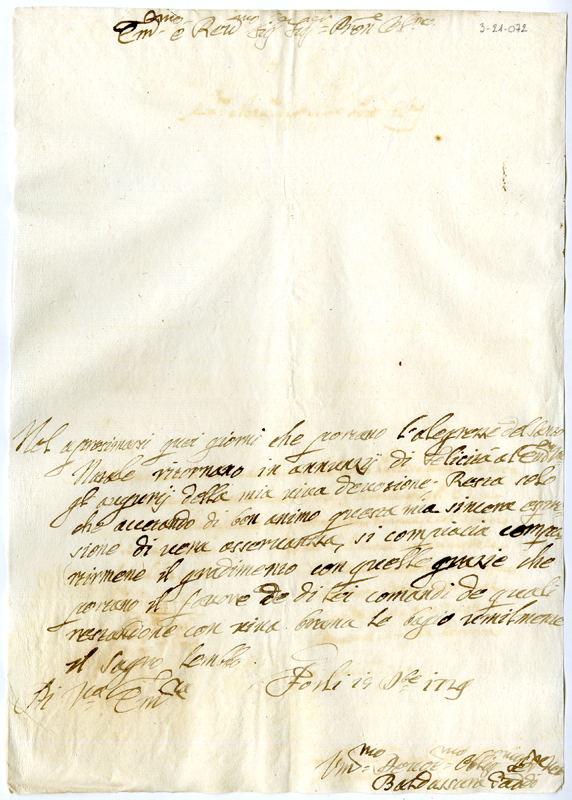 3-21-072
Em.mo e Rev.mo Sig.r Sig.r Pron.e Col.mo
Nel aprosimarsi quei giorni che portano l'alegrezze del Santo
Natale ritornano in annunzij di felicità al
gl'augurij della mia viva devozione. Resta solo
che accettando di bon animo questa mia sincera espres
sione di vera osservanza, si compiacia compar
tirmene il gradimento con quelle grazie che
portano il favore de di Lei comandi de quali
con viva brama le bagio umilmente
il Sagro Lembo.
Di V.ra Em.za Forlì 19 Xbre 1729
Um.mo
Baldassarre